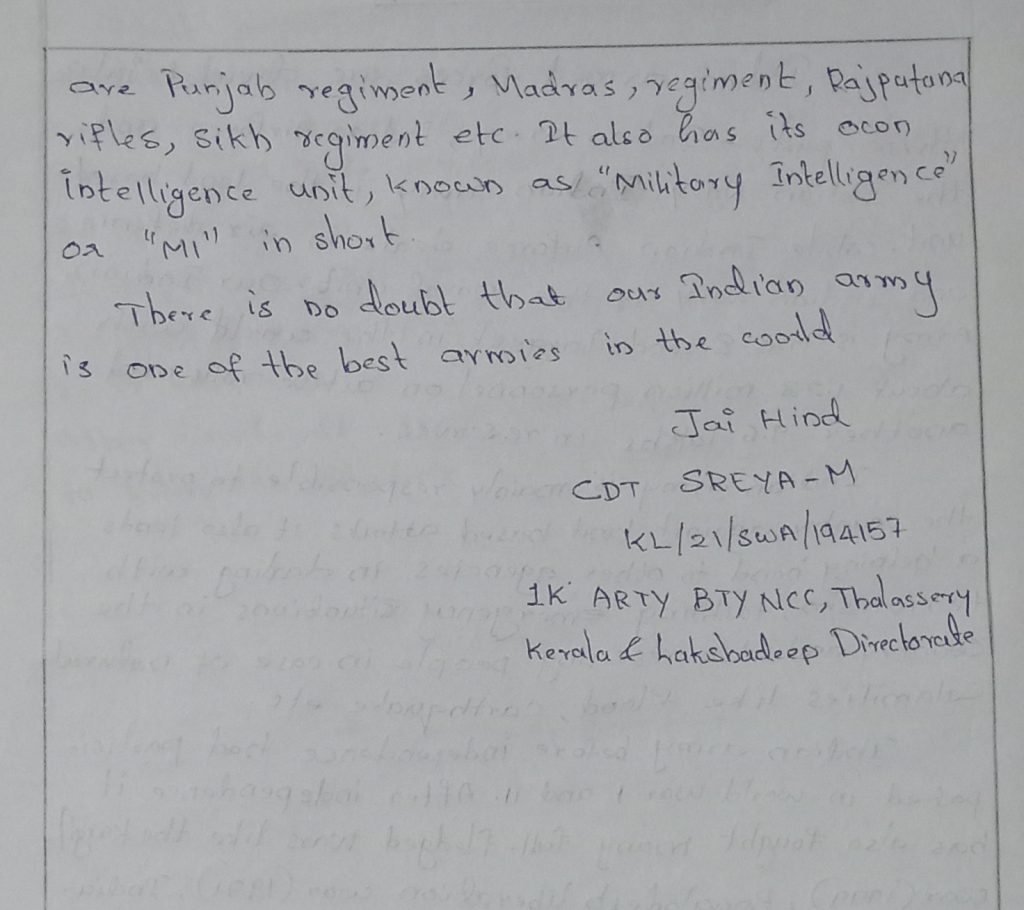 are Punjab regiment, Madras, regiment, Rajputana
rifles, Sikh regiment etc. It also has its own
intelligence unit, known as "Military Intelligence"
or "MI" in short.
There is no doubt that our Indian army
is one of the best armies in the world
Jai Hind
CDT SREYA-M
KL/21/SWA/194157
1K ARTY BTY NCC, Thalassery
Kerala & Lakshadeep Directorate